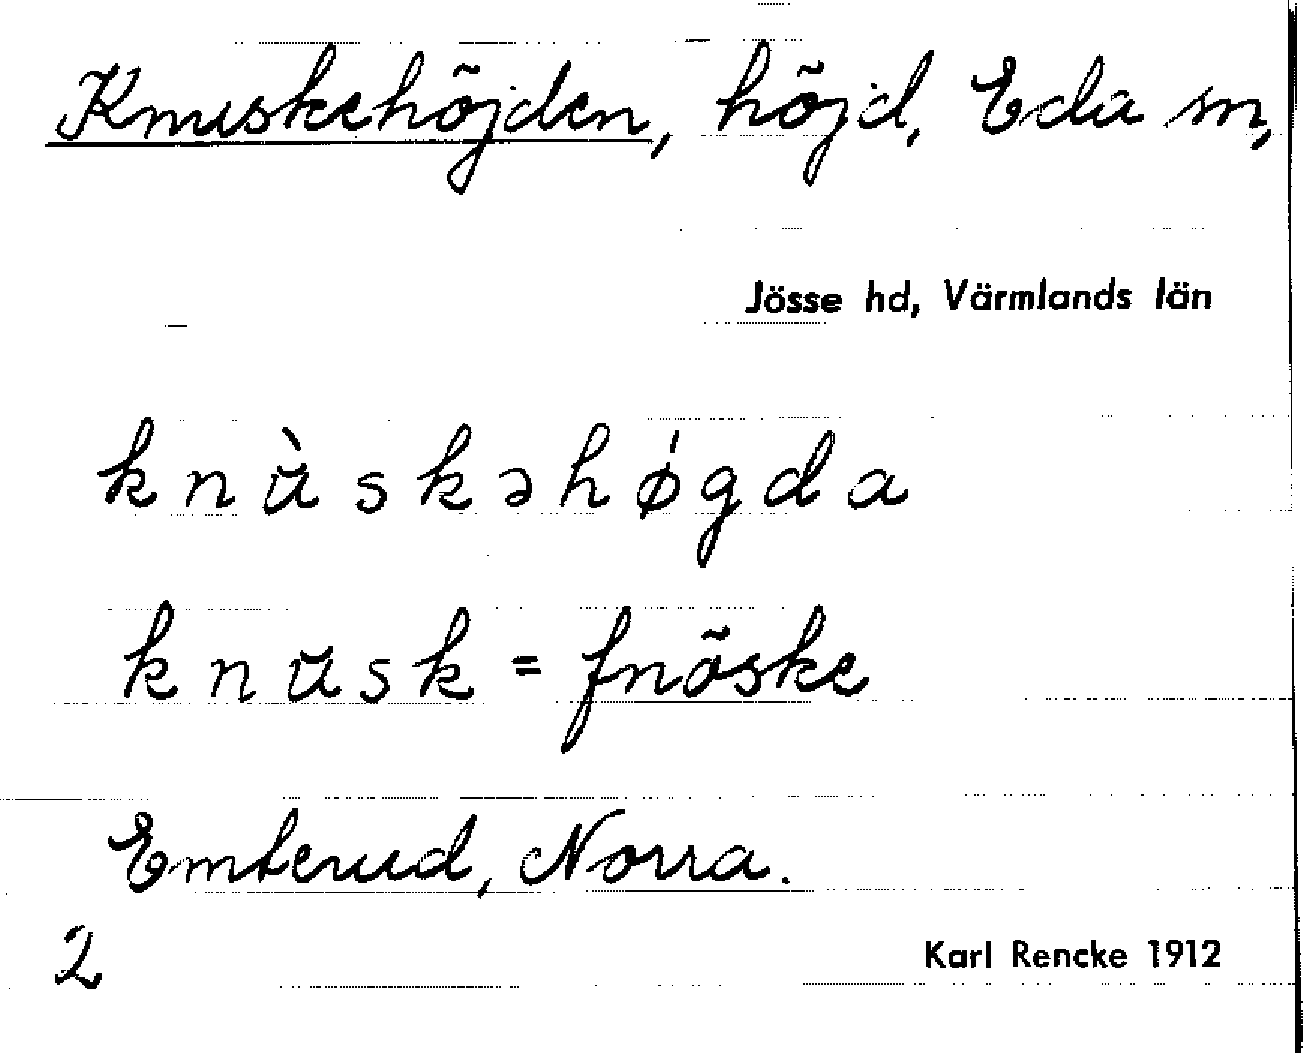 Knuskehöjden, höjd, Eda sn,
Jösse hd, Värmlands län
knùskəhǿgda
knusk = fnöske
Emterud, Norra.
2
Karl Rencke 1912